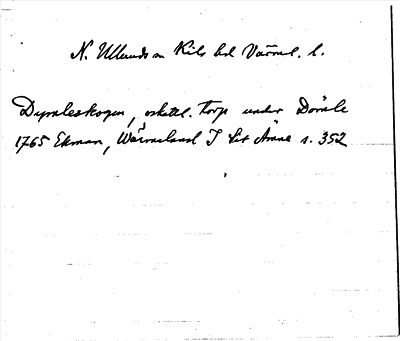 N. Ullerud sn Kils hd Värml. l.
Dyvleskogen, oskattl. torp under Dömle
1765 Ekman, Wärmeland I bit Ämne s. 352